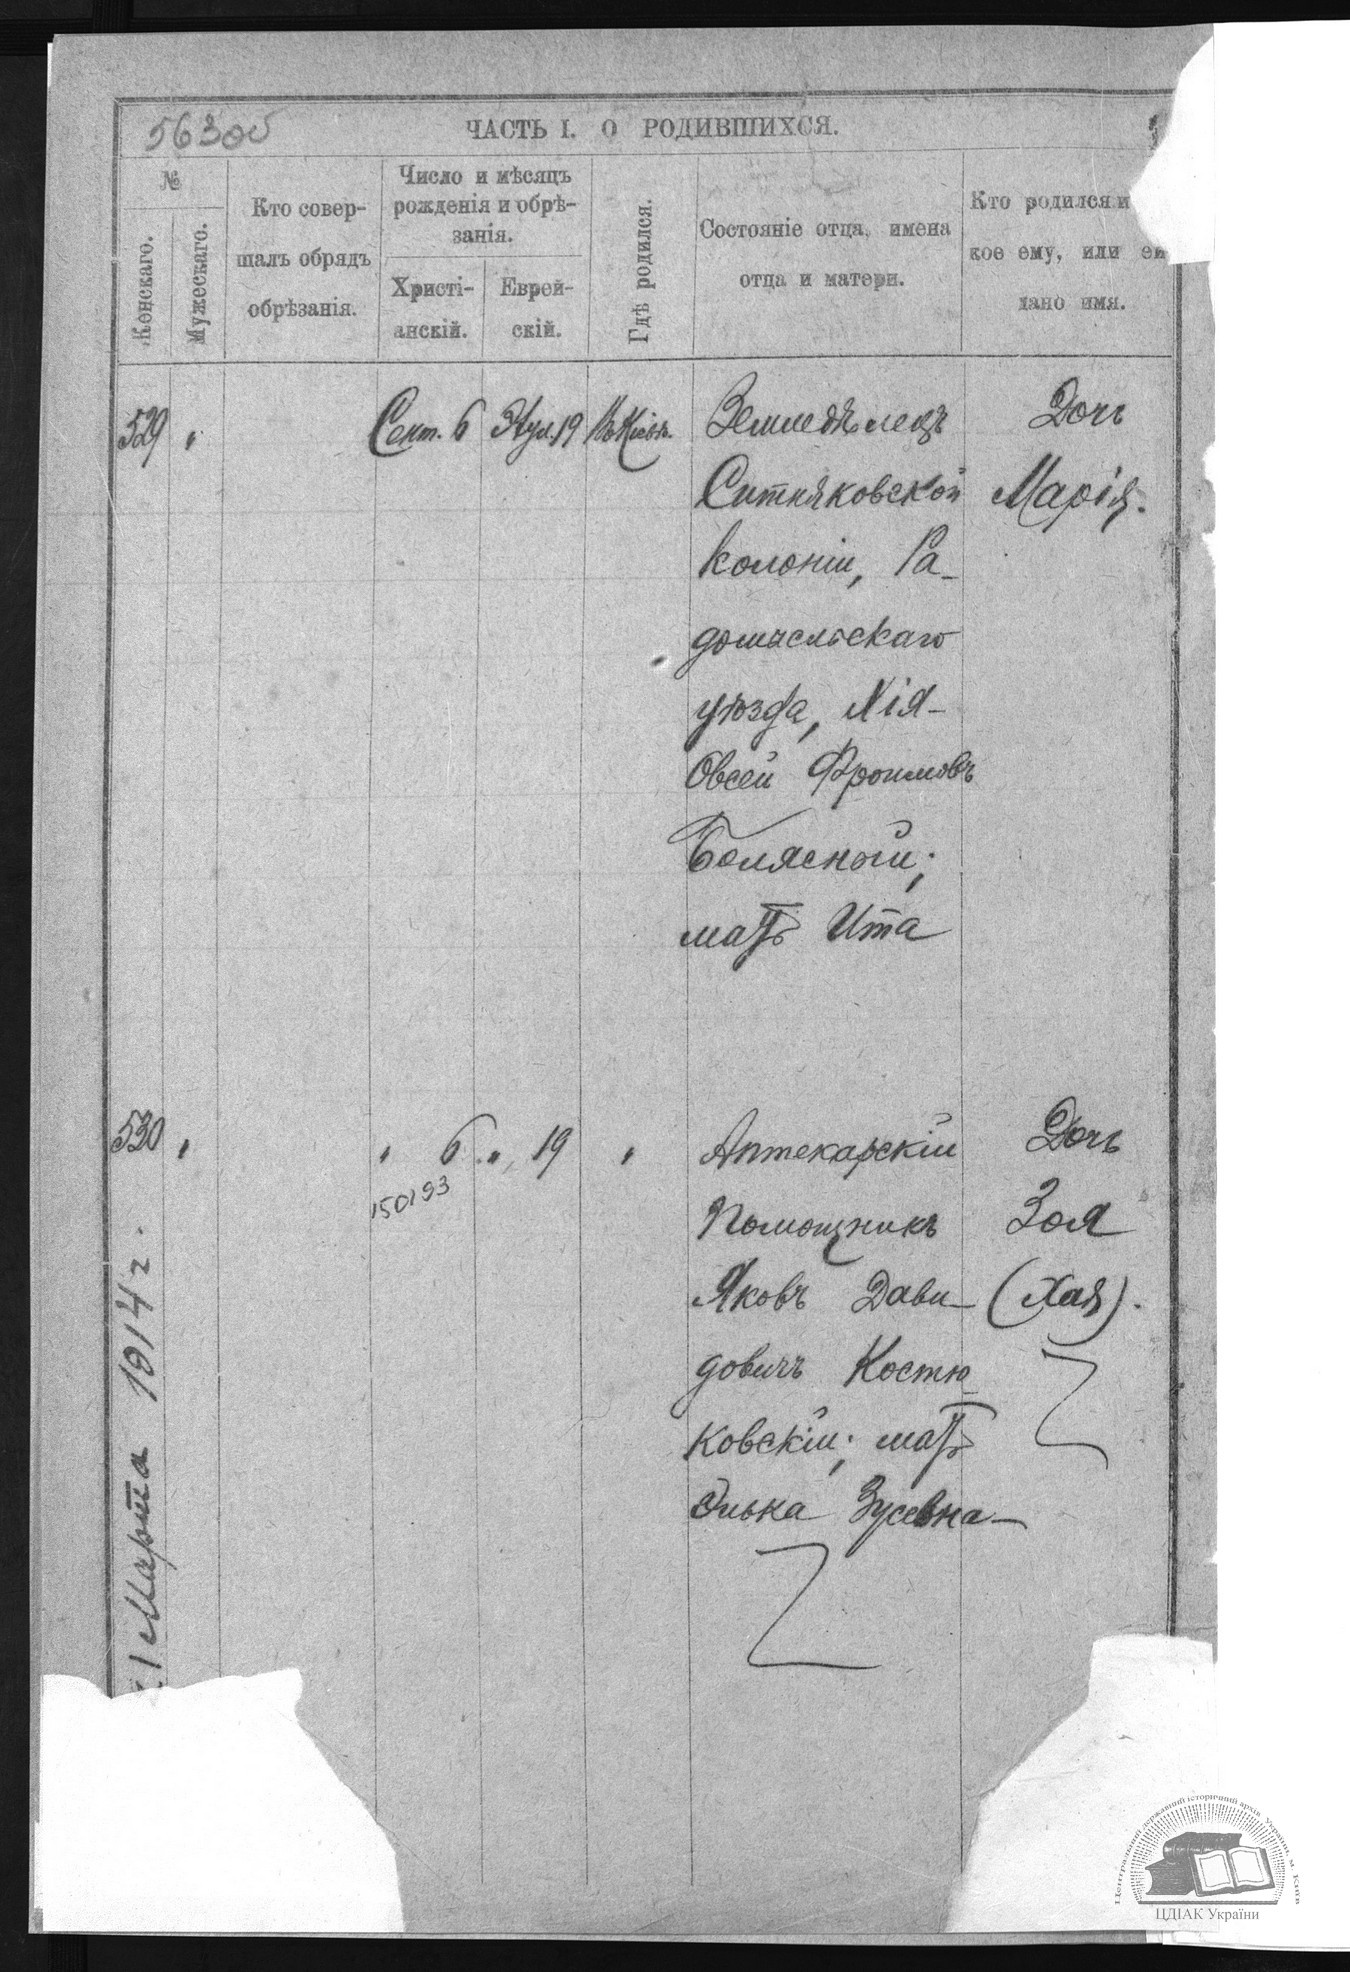 563об
ЧАСТЬ I. О РОДИВШИХСЯ.
№
Женскаго.
Мужескаго.
Кто совер-
шалъ обрядъ
обрѣзанія.
Число и мѣсяцъ
рожденія и обрѣ-
занія.
Христі-
анскій.
Еврей-
скій.
Гдѣ родился.
Состояніе отца, имена
отца и матери.
Кто родился и
кое ему, или ей
дано имя.
529 " Сент. 6 Элул. 19 Въ Кіевѣ.
Земледѣлецъ
Ситняковской
колоніи, Ра-
домысльскаго
уѣзда, Хія-
Овсей Фроимовъ
Болясный;
мать Ита
Дочь
Марія.
530 " " 6 " 19 "
150193
Аптекарскій
Помощникъ
Яковъ Дави-
довичъ Костю-
ковскій; мать
Элька Зусевна
Дочь
Зоя
(Хая).
1 Марта 1914 г.
Центральний державний історичний архів України, м. Київ
ЦДІАК України